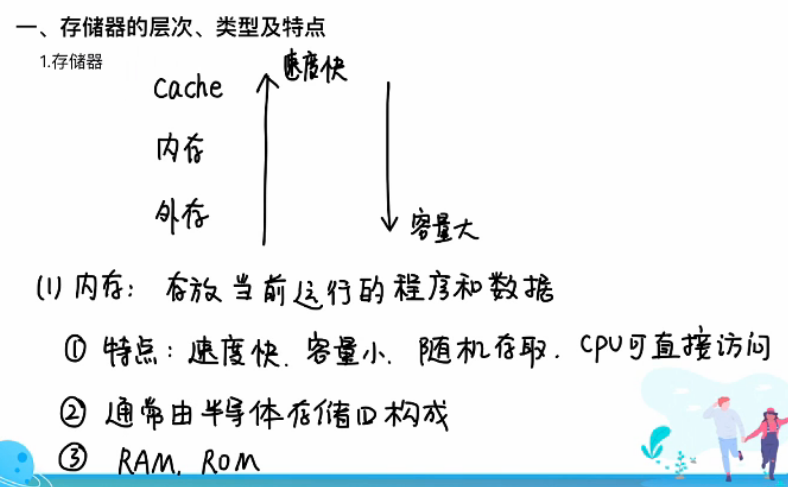 一、存储器的层次、类型及特点
1.存储器
Cache 速度快
内存
外存 容量大
(1) 内存: 存放当前运行的程序和数据
① 特点: 速度快、容量小、随机存取. CPU可直接访问
② 通常由半导体存储口构成
③ RAM, ROM